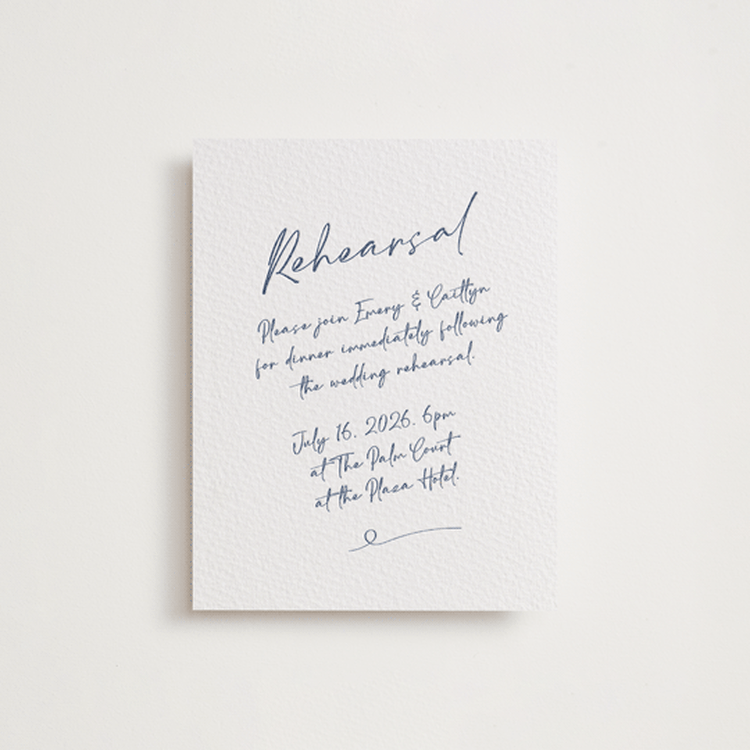 Rehearsal
Please join Emery & Caitlyn
for dinner immediately following
the wedding rehearsal.
July 16, 2026. 6pm
at The Palm Court
at the Plaza Hotel.